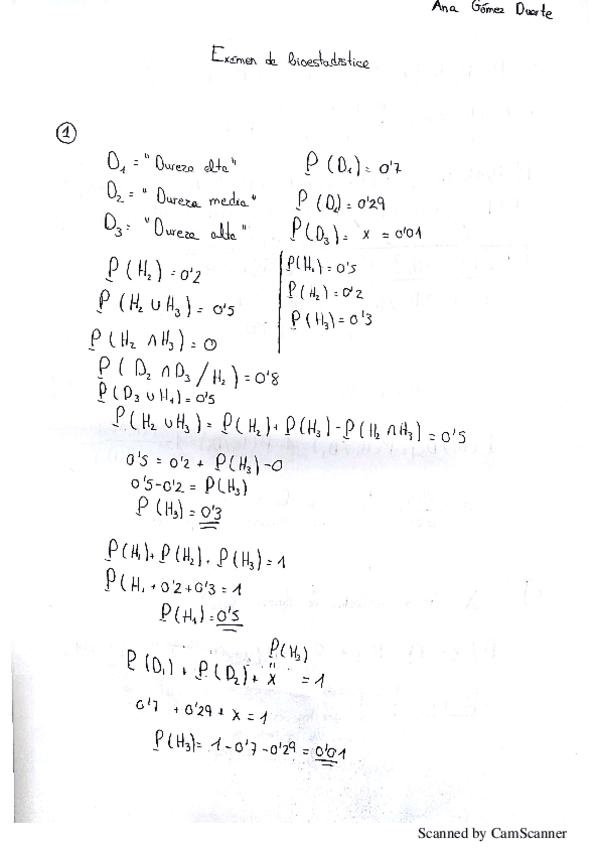 Ana Gómez Duarte
Exámen de bioestadística
①
D₁ = "Dureza alta" P(D₁) = 0'7
D₂ = "Dureza media" P(D₂) = 0'29
D₃ = "Dureza alta" P(D₃) = x = 0'01
P(H₂) = 0'2 P(H₁) = 0'5
P(H₂ ∪ H₃) = 0'5 P(H₂) = 0'2
P(H₂ ∩ H₃) = 0 P(H₃) = 0'3
P(D₂ ∩ D₃ / H₂) = 0'8
P(D₃ ∪ H₁) = 0'5
P(H₂ ∪ H₃) = P(H₂) + P(H₃) - P(H₂ ∩ H₃) = 0'5
0'5 = 0'2 + P(H₃) - 0
0'5 - 0'2 = P(H₃)
P(H₃) = 0'3
P(H₁) + P(H₂) + P(H₃) = 1
P(H₁ + 0'2 + 0'3 = 1
P(H₁) = 0'5
P(H₃)
P(D₁) + P(D₂) + x = 1
0'7 + 0'29 + x = 1
P(H₃) = 1 - 0'7 - 0'29 = 0'01
Scanned by CamScanner